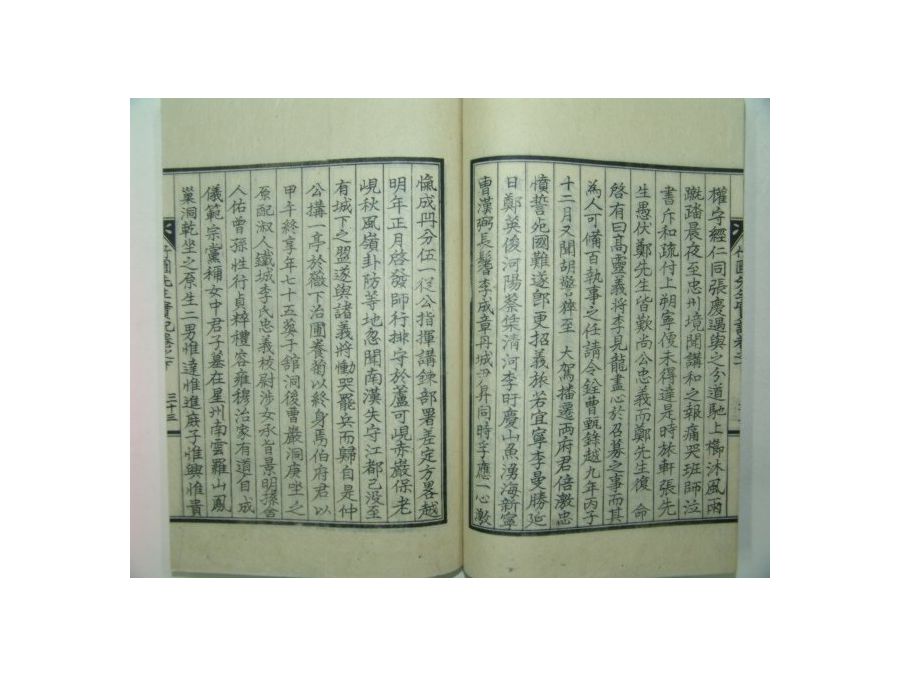 權宇經仁同張慶遇與之分道馳上櫛沐風雨
蹴踏晨夜至忠州境聞講和之報痛哭班師泣
書斥和疏付上朔寧便未得達是時旅軒張先
生愚伏鄭先生皆歎尚公忠義而鄭先生復 命
啓有曰高靈義將李見龍盡心於召募之事而其
為人可備百執事之任請令銓曹甄錄越九年丙子
十二月又聞胡警猝至 大駕播遷兩府君倍激忠
憤誓死國難遂卽更招義旅若宜寧李曼勝延
日鄭英俊河陽蔡楘清河李旴慶山魚湧海新寧
曹漢弼長鬐李成章丹城 昇同時李應一心激
竹圃先生實記卷之下 三十三
愾成冊分伍一從公指揮講鍊部署差定方畧越
明年正月啓發師行排守於蘆可峴赤巖保老
峴秋風嶺卦防等地忽聞南漢失守江都已没至
有城下之盟遂與諸義將慟哭罷兵而歸自是仲
公搆一亭於 下治圃養菊以終身焉伯府君以
甲午終享年七十五葬于舘洞後曹巖洞庚坐之
原配淑人鐵城李氏忠義校尉涉女承旨景明孫舍
人佑曾孫性行貞粹禮容雍穆治家有道自成
儀範宗黨稱女中君子墓在星州南雲羅山鳳
巢洞乾坐之原生二男惟達惟進庶子惟興惟貴